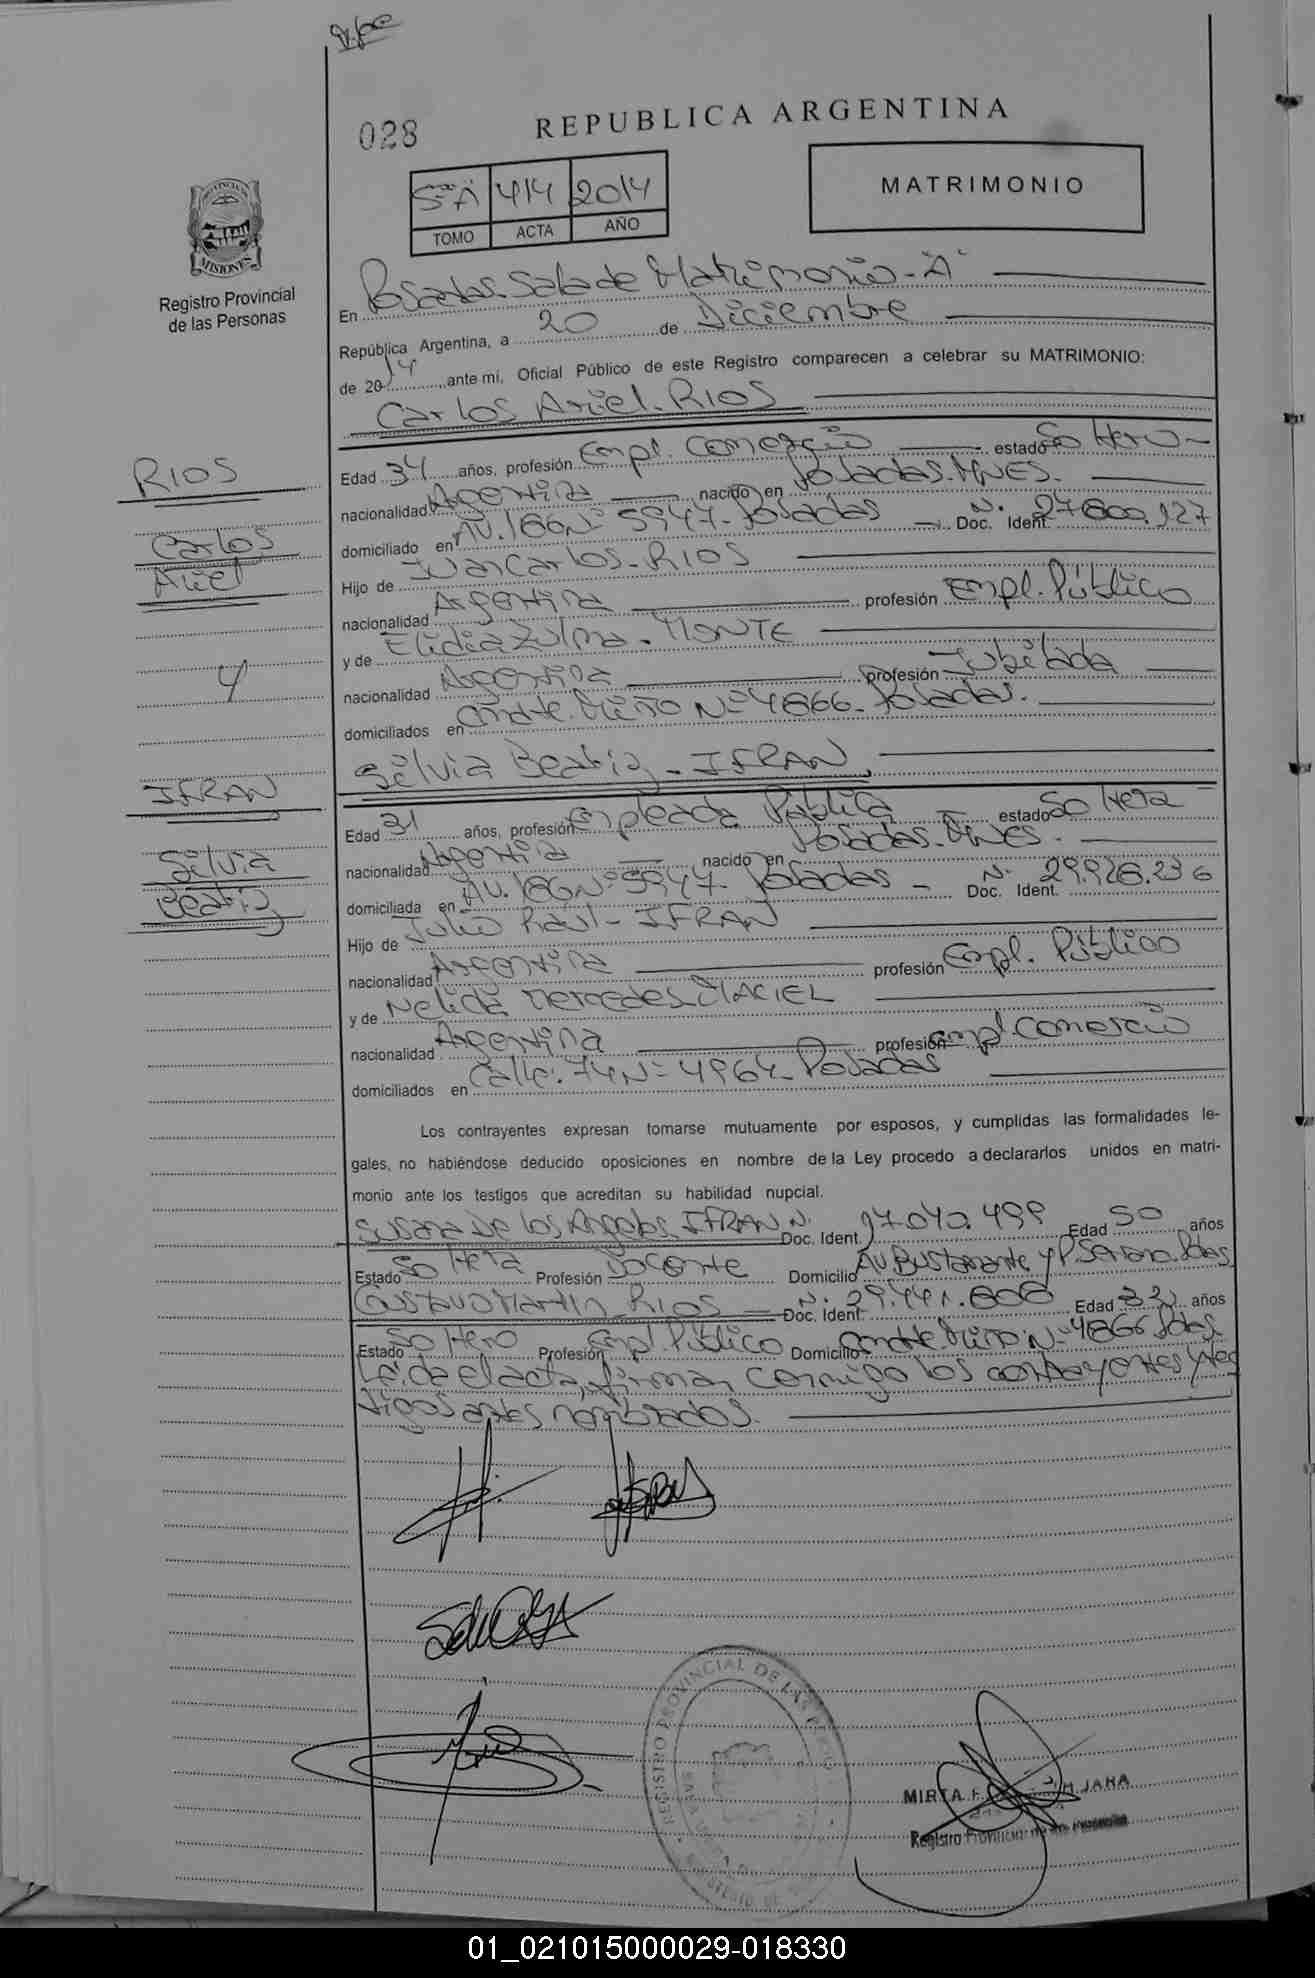 028
REPUBLICA ARGENTINA
MATRIMONIO
S"A" 414 2014
TOMO ACTA AÑO
MISIONES
Registro Provincial
de las Personas
En Posadas. Sala de Matrimonio-"A"
República Argentina, a 20 de Diciembre
de 2014 ante mí, Oficial Público de este Registro comparecen a celebrar su MATRIMONIO:
Carlos Ariel. RIOS
RIOS
Carlos
Ariel
y
IFRAN
Silvia
Beatriz
Edad 34 años, profesión Empl. Comercio estado Soltero-
nacionalidad Argentina nacido en Posadas. MNES.
domiciliado en AV. 186 Nº 5947- Posadas Doc. Ident. N. 27.800.127
Hijo de Juan Carlos. RIOS
nacionalidad Argentina profesión Empl. Público
y de Elidia Zulma. MONTE
nacionalidad Argentina profesión Jubilada
domiciliados en Cmdte. Miño Nº 4866. Posadas.
Silvia Beatriz - IFRAN
Edad 31 años, profesión Empleada Pública estado Soltera
nacionalidad Argentina nacido en Posadas. MNES.
domiciliada en AV. 186 Nº 5947- Posadas - Doc. Ident. N. 29.928.236
Hijo de Julio Raúl - IFRAN
nacionalidad Argentina profesión Empl. Público
y de Nelida Mercedes. MACIEL
nacionalidad Argentina profesión Empl Comercio
domiciliados en Calle: 74 Nº 4964- Posadas
Los contrayentes expresan tomarse mutuamente por esposos, y cumplidas las formalidades le-
gales, no habiéndose deducido oposiciones en nombre de la Ley procedo a declararlos unidos en matri-
monio ante los testigos que acreditan su habilidad nupcial.
Susana De los Angeles. IFRAN Doc. Ident. N. 17.040.499 Edad 50 años
Estado Soltera Profesión Docente Domicilio Av Bustamante y P. Sereno. Pdas
Gustavo Martin. RIOS Doc. Ident. N. 29.441.606 Edad 32 años
Estado Soltero Profesión Empl. Público Domicilio Cmdte. Miño Nº 4866 Pdas.
Leida el acta, firman conmigo los contrayentes y tes
tigos antes nombrados.
REGISTRO PROVINCIAL DE LAS
MIRTA JARA
Registro Provincial de las Personas
01_021015000029-018330